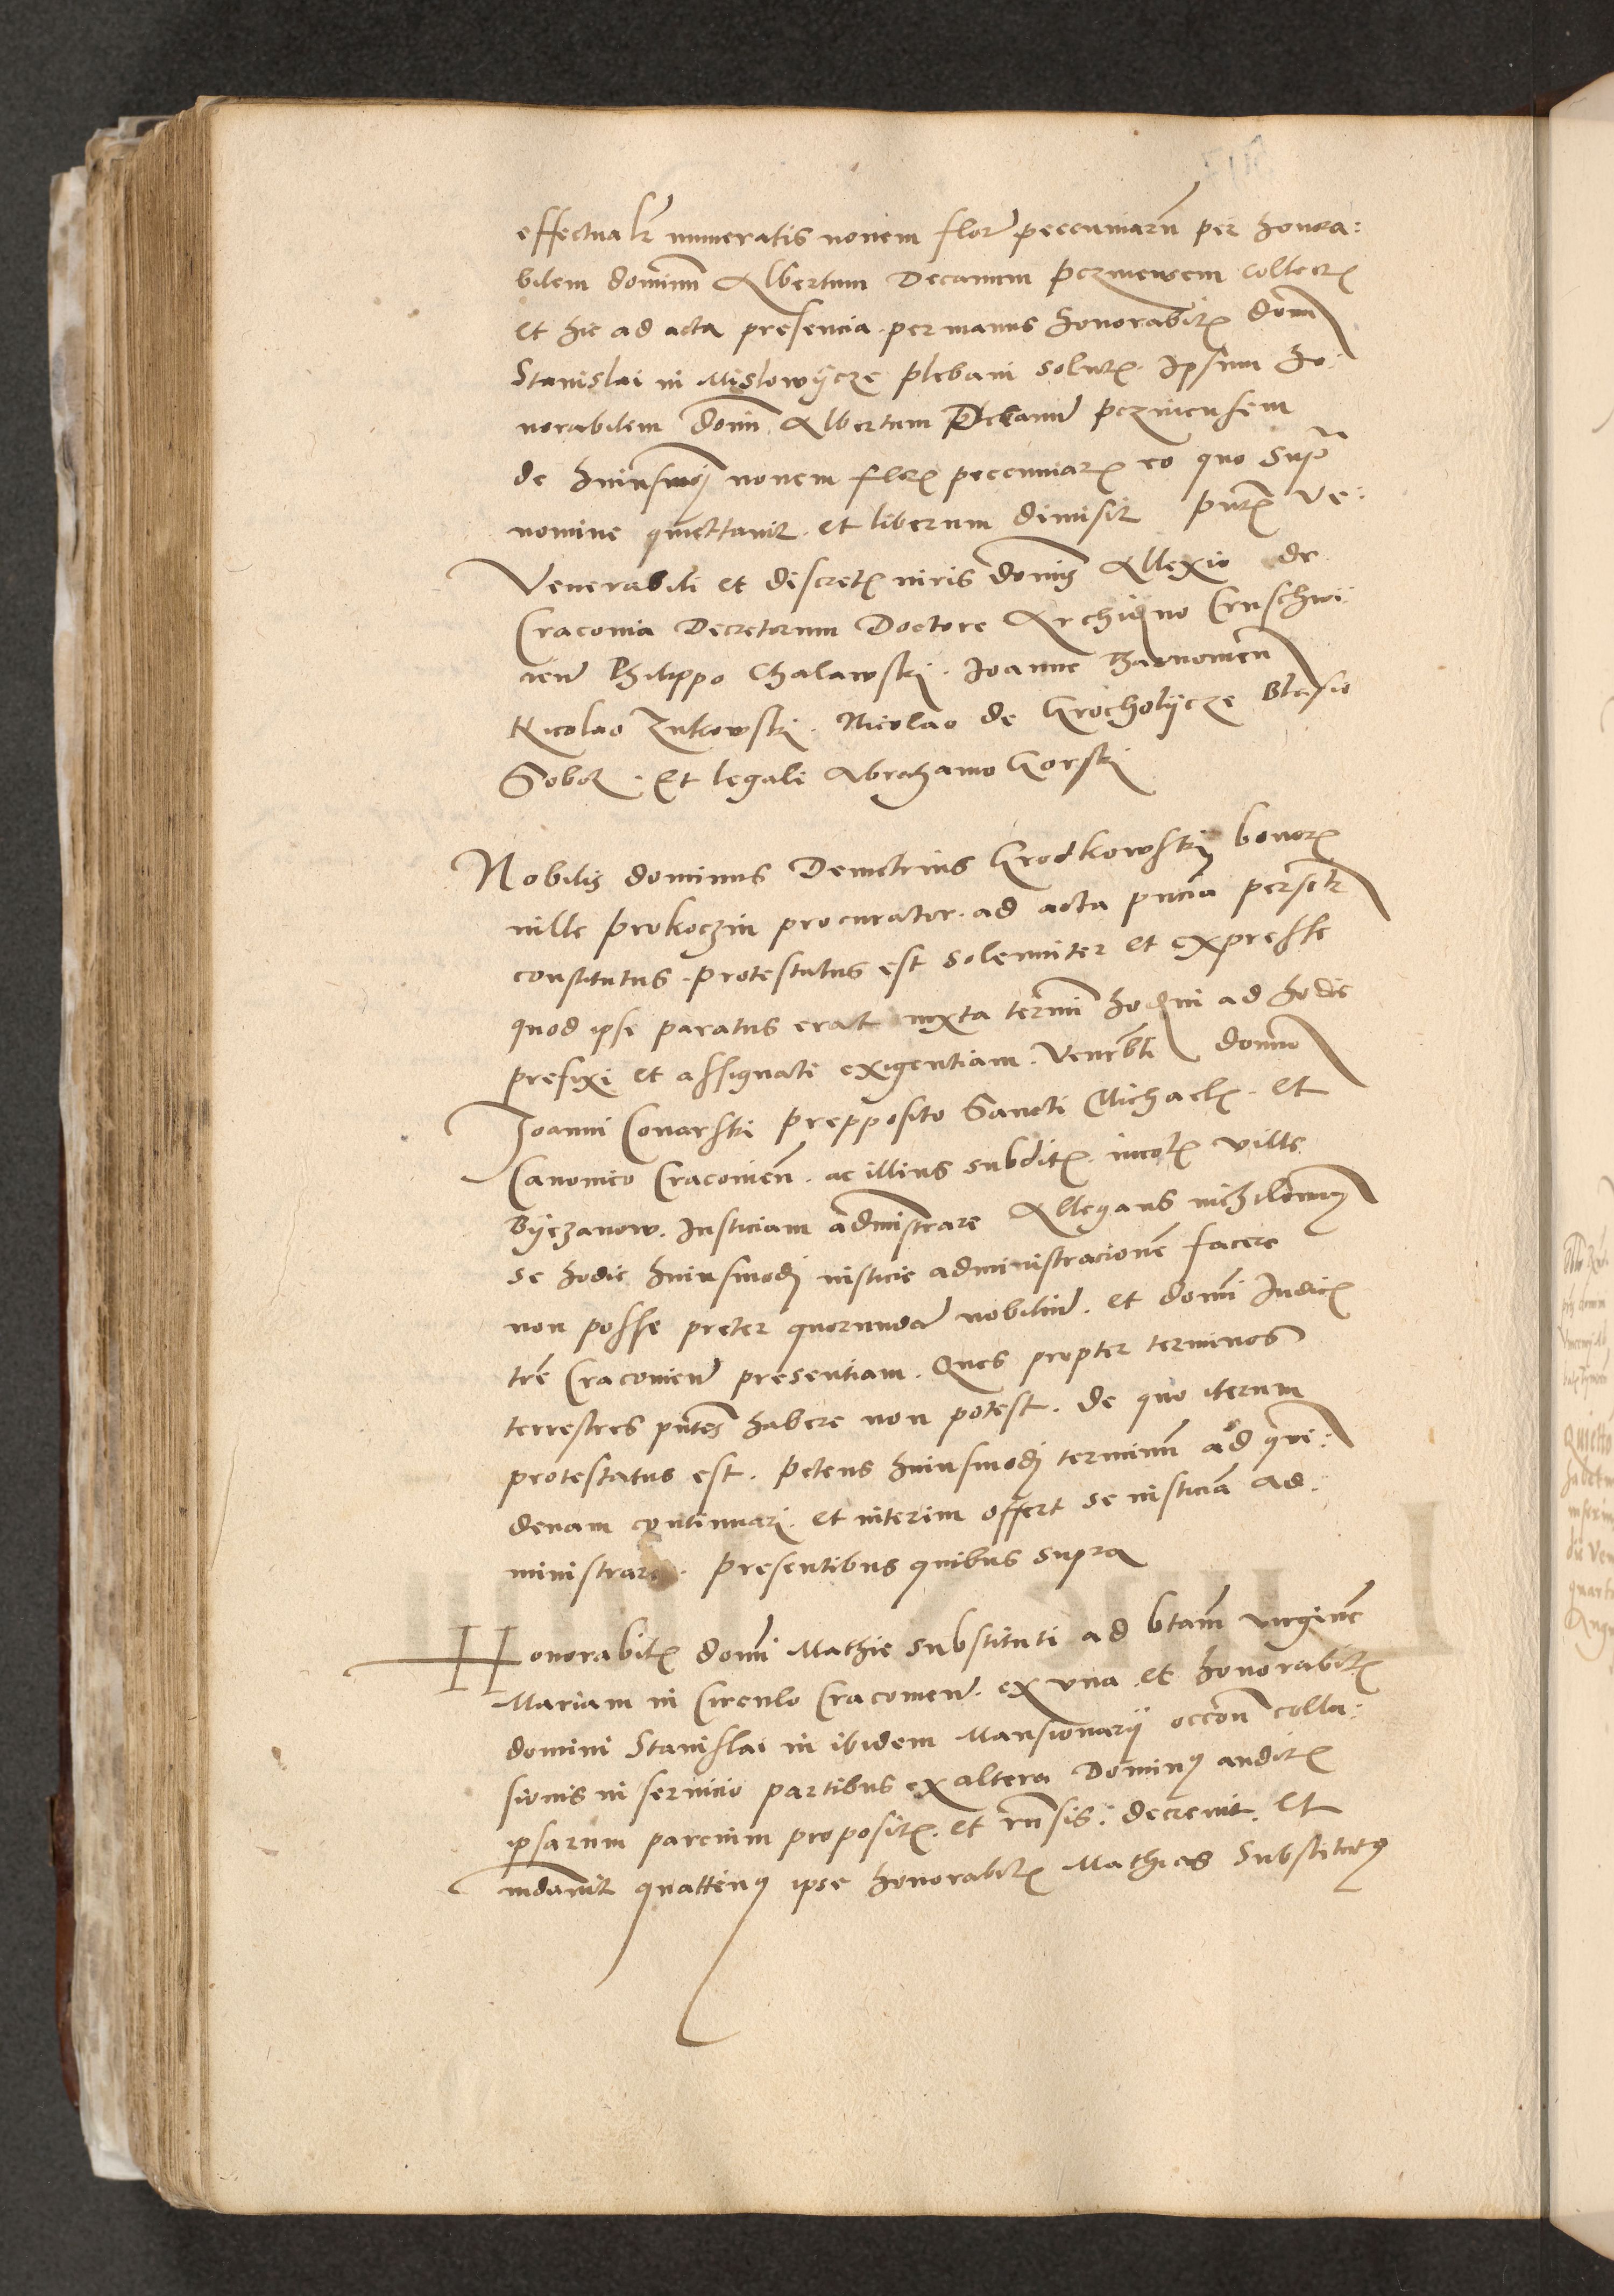 effectualr numeratis novem flor peccuniarum per honora:
bilem dominum Albertum Decanum pezmensem collectis
et hic ad acta presencia per manus honorabilis domini
Stanislai in Mislowÿcze plebani solutis. Ipsum ho:
norabilem domim Albertum Decanum pezmensem
de huiusmodi novem floris peccuniaris eo quo supra
nomine quiettavit. et liberum dimisit pntibus Ve:
Venerabili et discretis viris dominis Allexio de
Craconia Decretorum Doctore Archidno Cruschwi:
cien Philippo Chalawski. Joanne Tharnowien
Nicolao Zukowski. Nicolao de Grocholÿcze Blasio
Sobol. et legali Abrahamo Gorski
Nobilis dominus Demetrius Grodkowski bonoris
ville Prokoczin procurator. ad acta pncia personalr
constitutus. protestatus est solenniter et expresse
quod ipse paratus erat iuxta termini hodierni ad hodie
prefixi et assignati exigentiam. Venerabili domino
Joanni Conarski preposito Sancti Michaelis. et
Canonico Cracovien. ac illius subditis. incolis ville
Byezanow. Iusticiam administrare Allegans nichilominus
se hodie huiusmodi iusticie administracionem facere
non posse preter quorundam nobilium. et domini Iudicis
tre Cracovien presentiam. Ques propter terminos
terrestres pntes habere non potest. de quo iterum
protestatus est. petens huiusmodi terminum ad qvi:
denam continuari. et interim offert se iusticiam ad
ministrare. presentibus quibus supra
Honorabilis domini Mathie substituti ad btam virginem
Mariam in Circulo Cracovien. ex vna. et honorabilis
domini Stanislai in ibidem Mansionarij occon colla:
sionis in servicio partibus ex altera Dominus auditis
ipsarum parcium propositis. et rnsis. decrevit. et
mdavit quattinus ipse honorabilis Mathias Substitutus